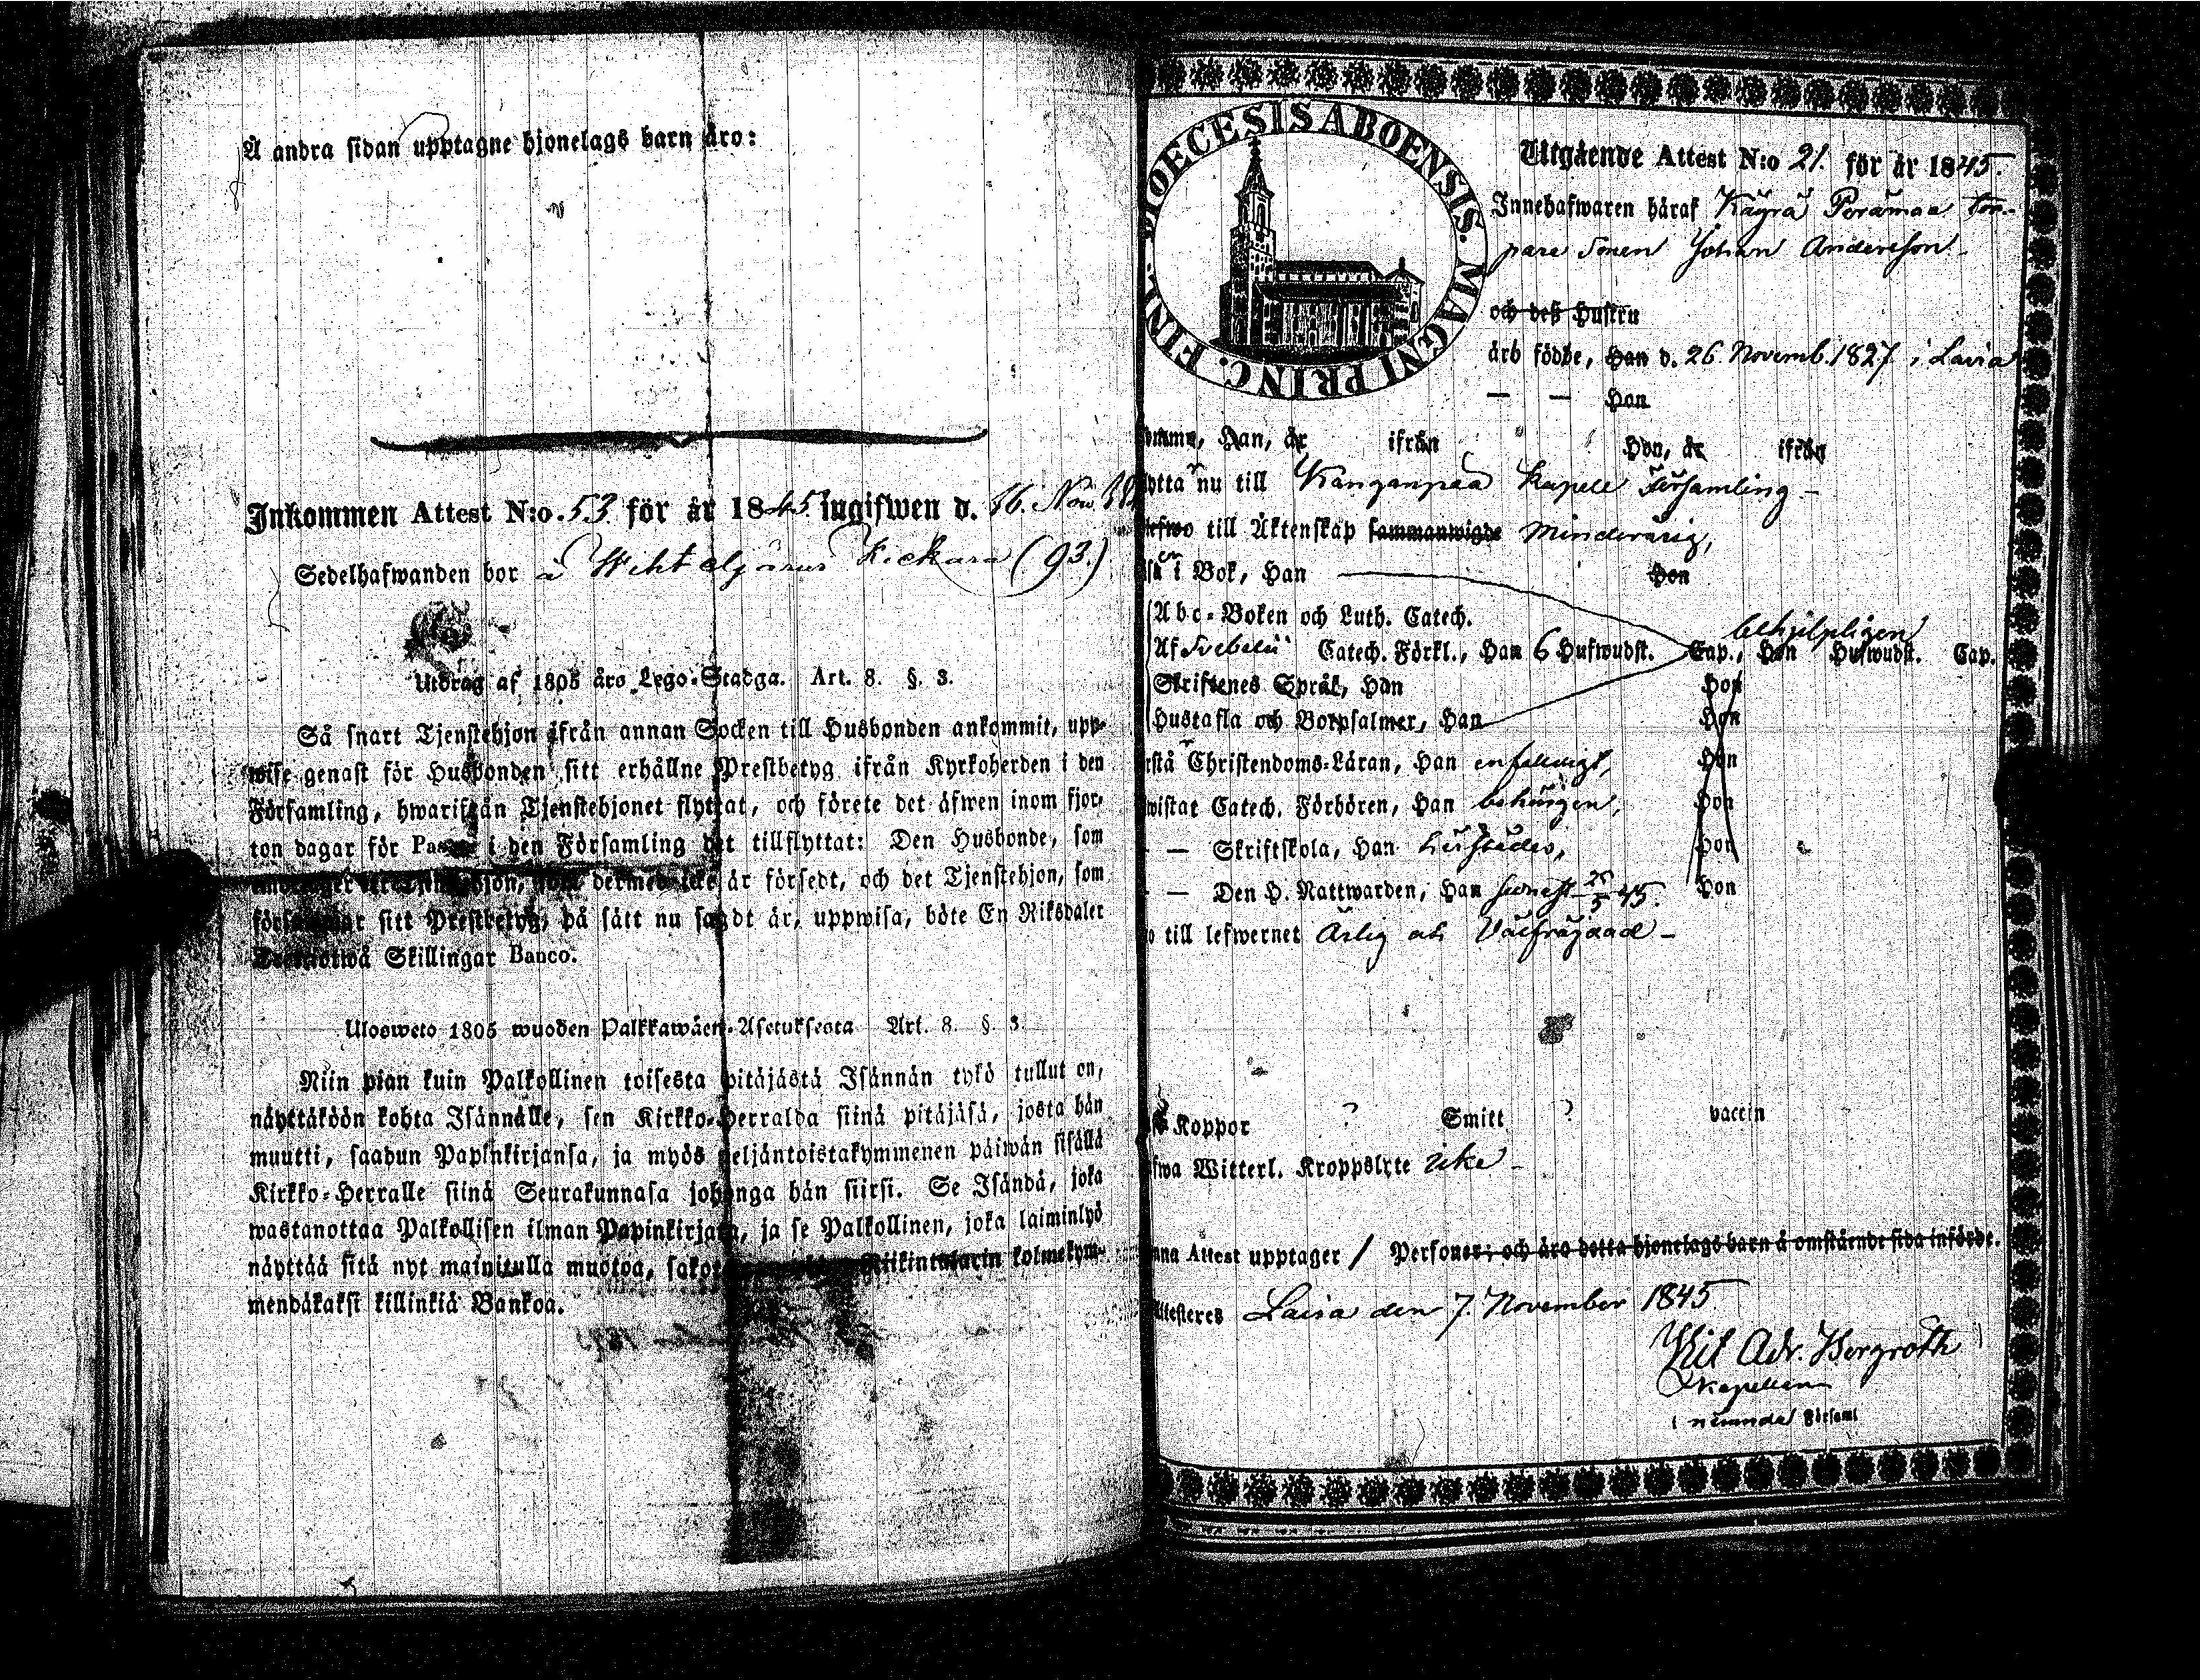 Å andra sidan upptagne hjonelags barn äro:
Inkommen Attest N:o 53. för år 1845. ingifwen d. 16. Nov.
Sedelhafwanden bor å (93.)
Utdrag af 1805 års Lego-Stadga. Art. 8. §. 3.
Så snart Tjenstehjon ifrån annan Socken till Husbonden ankommit, upp-
wise genast för Husbonden sitt erhållne Prestbetyg ifrån Kyrkoherden i den
Församling, hwarifrån Tjenstehjonet flyttat, och förete det äfwen inom fjor-
ton dagar för Pastor i den Församling det tillflyttat: Den Husbonde, som
dermed icke är försedt, och det Tjenstehjon, som
försummar sitt Prestbetyg, på sätt nu sagdt är, uppwisa, böte En Riksdaler
Trettiotwå Skillingar Banco.
Ulosweto 1805 wuoden Palkkawäen-Asetuksesta Art. 8. §. 3.
Niin pian kuin Palkollinen toisesta pitäjästä Isännän tykö tullut on,
näyttäköön kohta Isännälle, sen Kirkko-Herralda siinä pitäjäsä, josta hän
muutti, saadun Papinkirjansa, ja myös neljäntoistakymmenen päiwän sisällä
Kirkko-Herralle siinä Seurakunnasa johonga hän siirsi. Se Isändä, joka
wastanottaa Palkollisen ilman Papinkirjata, ja se Palkollinen, joka laiminlyö
näyttää sitä nyt mainitulla muotoa, Riikintalarin kolmekym-
mendäkaksi killinkiä Bankoa.
DIOECESIS ABOENSIS. MAGNI PRINC. FINL.
Utgående Attest N:o 21. för år 1845.
Innehafwaren häraf Käyrä Perämaa tor-
pare Sonen Johan Andersson
och deß Hustru
äro födde, Han d. 26 Novemb. 1827 i Lavia
— — Hon
Han, är ifrån Hon, är ifrån
nu till Kanganpää Kapell Församling
till Äktenskap sammanwigde Minderårig,
i Bok, Han Hon
behjelpligen
Abc-Boken och Luth. Catech.
Af Svebelii Catech. Förkl., Han 6 Hufwudst. Cap., Hon Hufwudst. Cap.
Skriftenes Språk, Han Hon
Hustafla och Botpsalmer, Han Hon
Christendoms-Läran, Han enfaldigt, Hon
Catech. Förhören, Han behörigen, Hon
— Skriftskola, Han Hon
— Den H. Nattwarden, Han senast 25/5 45. Hon
till lefwernet Ärlig och Välfrägdad
Koppor ? Smitt ? vaccin
Witterl. Kroppslyte icke
Attest upptager 1 Personer; och äro detta hjonelags barn å omstående sida införde.
Attesteres Lavia den 7. November 1845
Vit Adr. Bergroth
Kapellan
i nämnda Församl